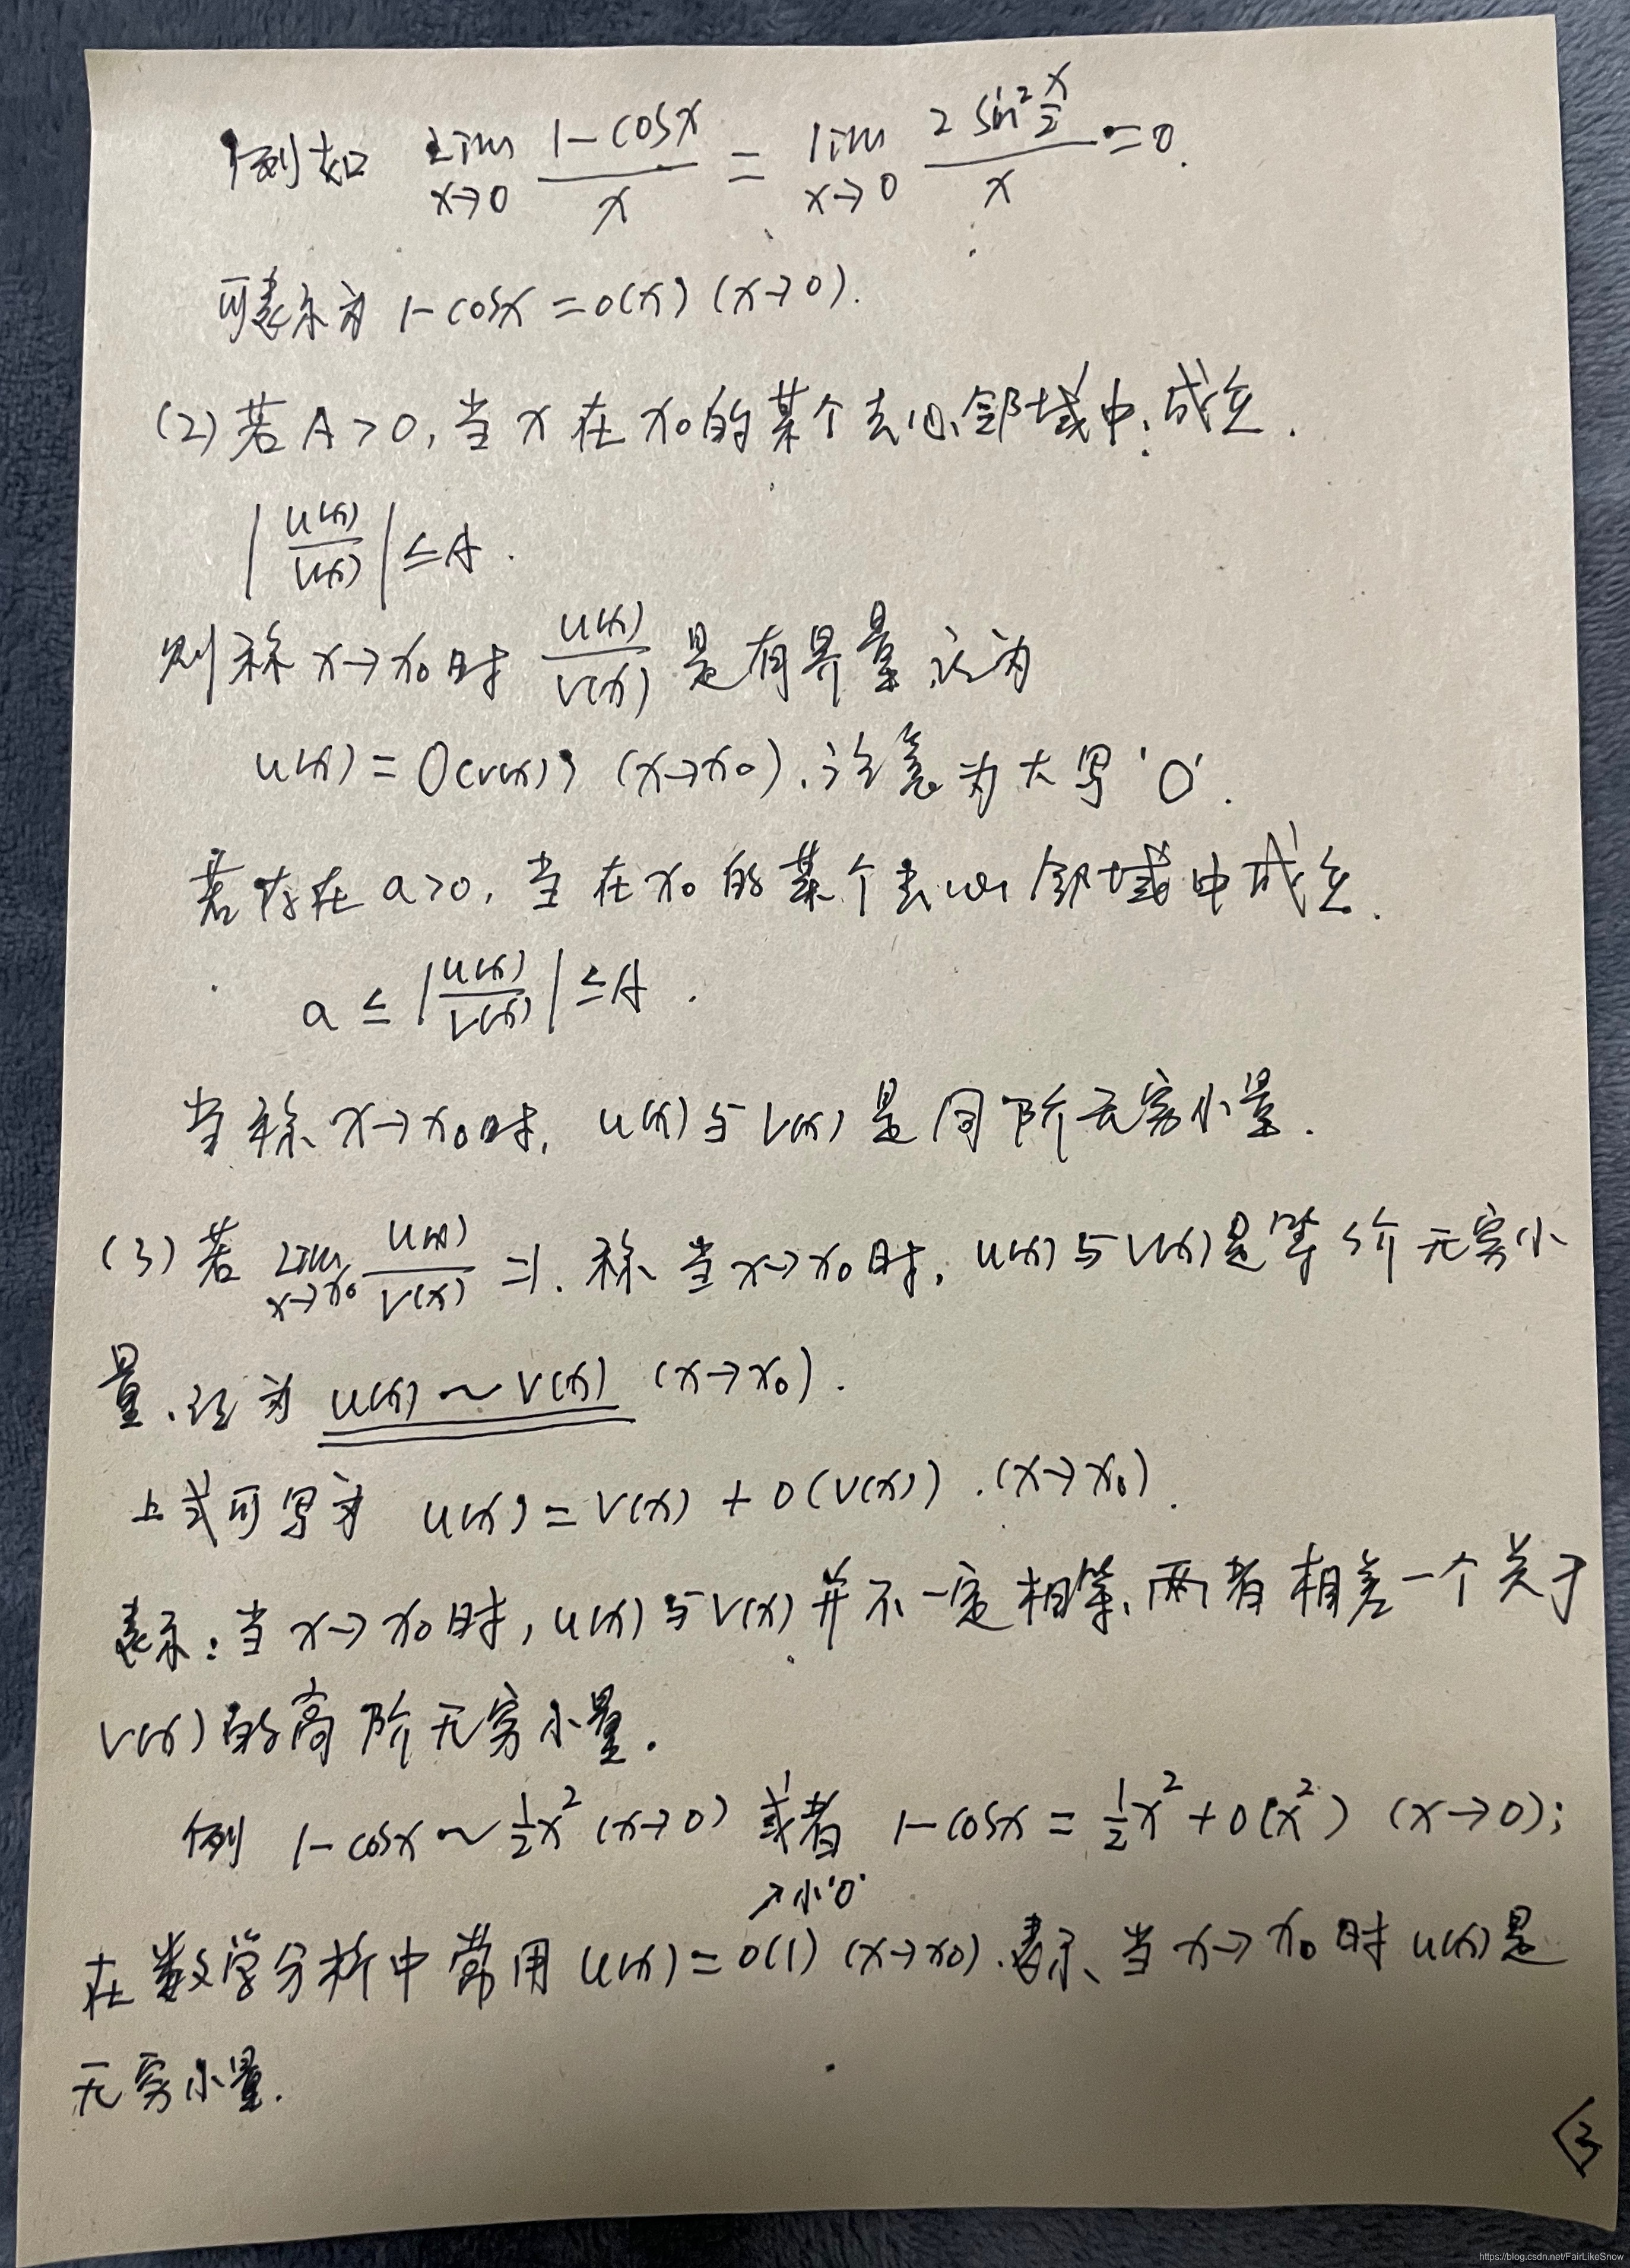 例如 lim_{x→0} (1-cosx)/x = lim_{x→0} (2sin²(x/2))/x = 0.
可表示为 1-cosx = o(x) (x→0).
(2) 若 A>0, 当 x 在 x₀ 的某个去心邻域中, 成立.
|u(x)/v(x)| ≤ A.
则称 x→x₀ 时 u(x)/v(x) 是有界量, 记为
u(x) = O(v(x)) (x→x₀), 注意为大写'O'.
若存在 a>0, 当在 x₀ 的某个去心邻域中成立.
a ≤ |u(x)/v(x)| ≤ A.
当称 x→x₀ 时, u(x) 与 v(x) 是同阶无穷小量.
(3) 若 lim_{x→x₀} u(x)/v(x) = 1. 称当 x→x₀ 时, u(x) 与 v(x) 是等价无穷小
量, 记为 u(x) ~ v(x) (x→x₀).
上式可写为 u(x) = v(x) + o(v(x)). (x→x₀).
表示: 当 x→x₀ 时, u(x) 与 v(x) 并不一定相等, 两者相差一个关于
v(x) 的高阶无穷小量.
例 1-cosx ~ ½x² (x→0) 或者 1-cosx = ½x² + o(x²) (x→0);
↗小'o'
在数学分析中常用 u(x) = o(1) (x→x₀). 表示、当 x→x₀ 时 u(x) 是
无穷小量.
3
https://blog.csdn.net/FairLikeSnow